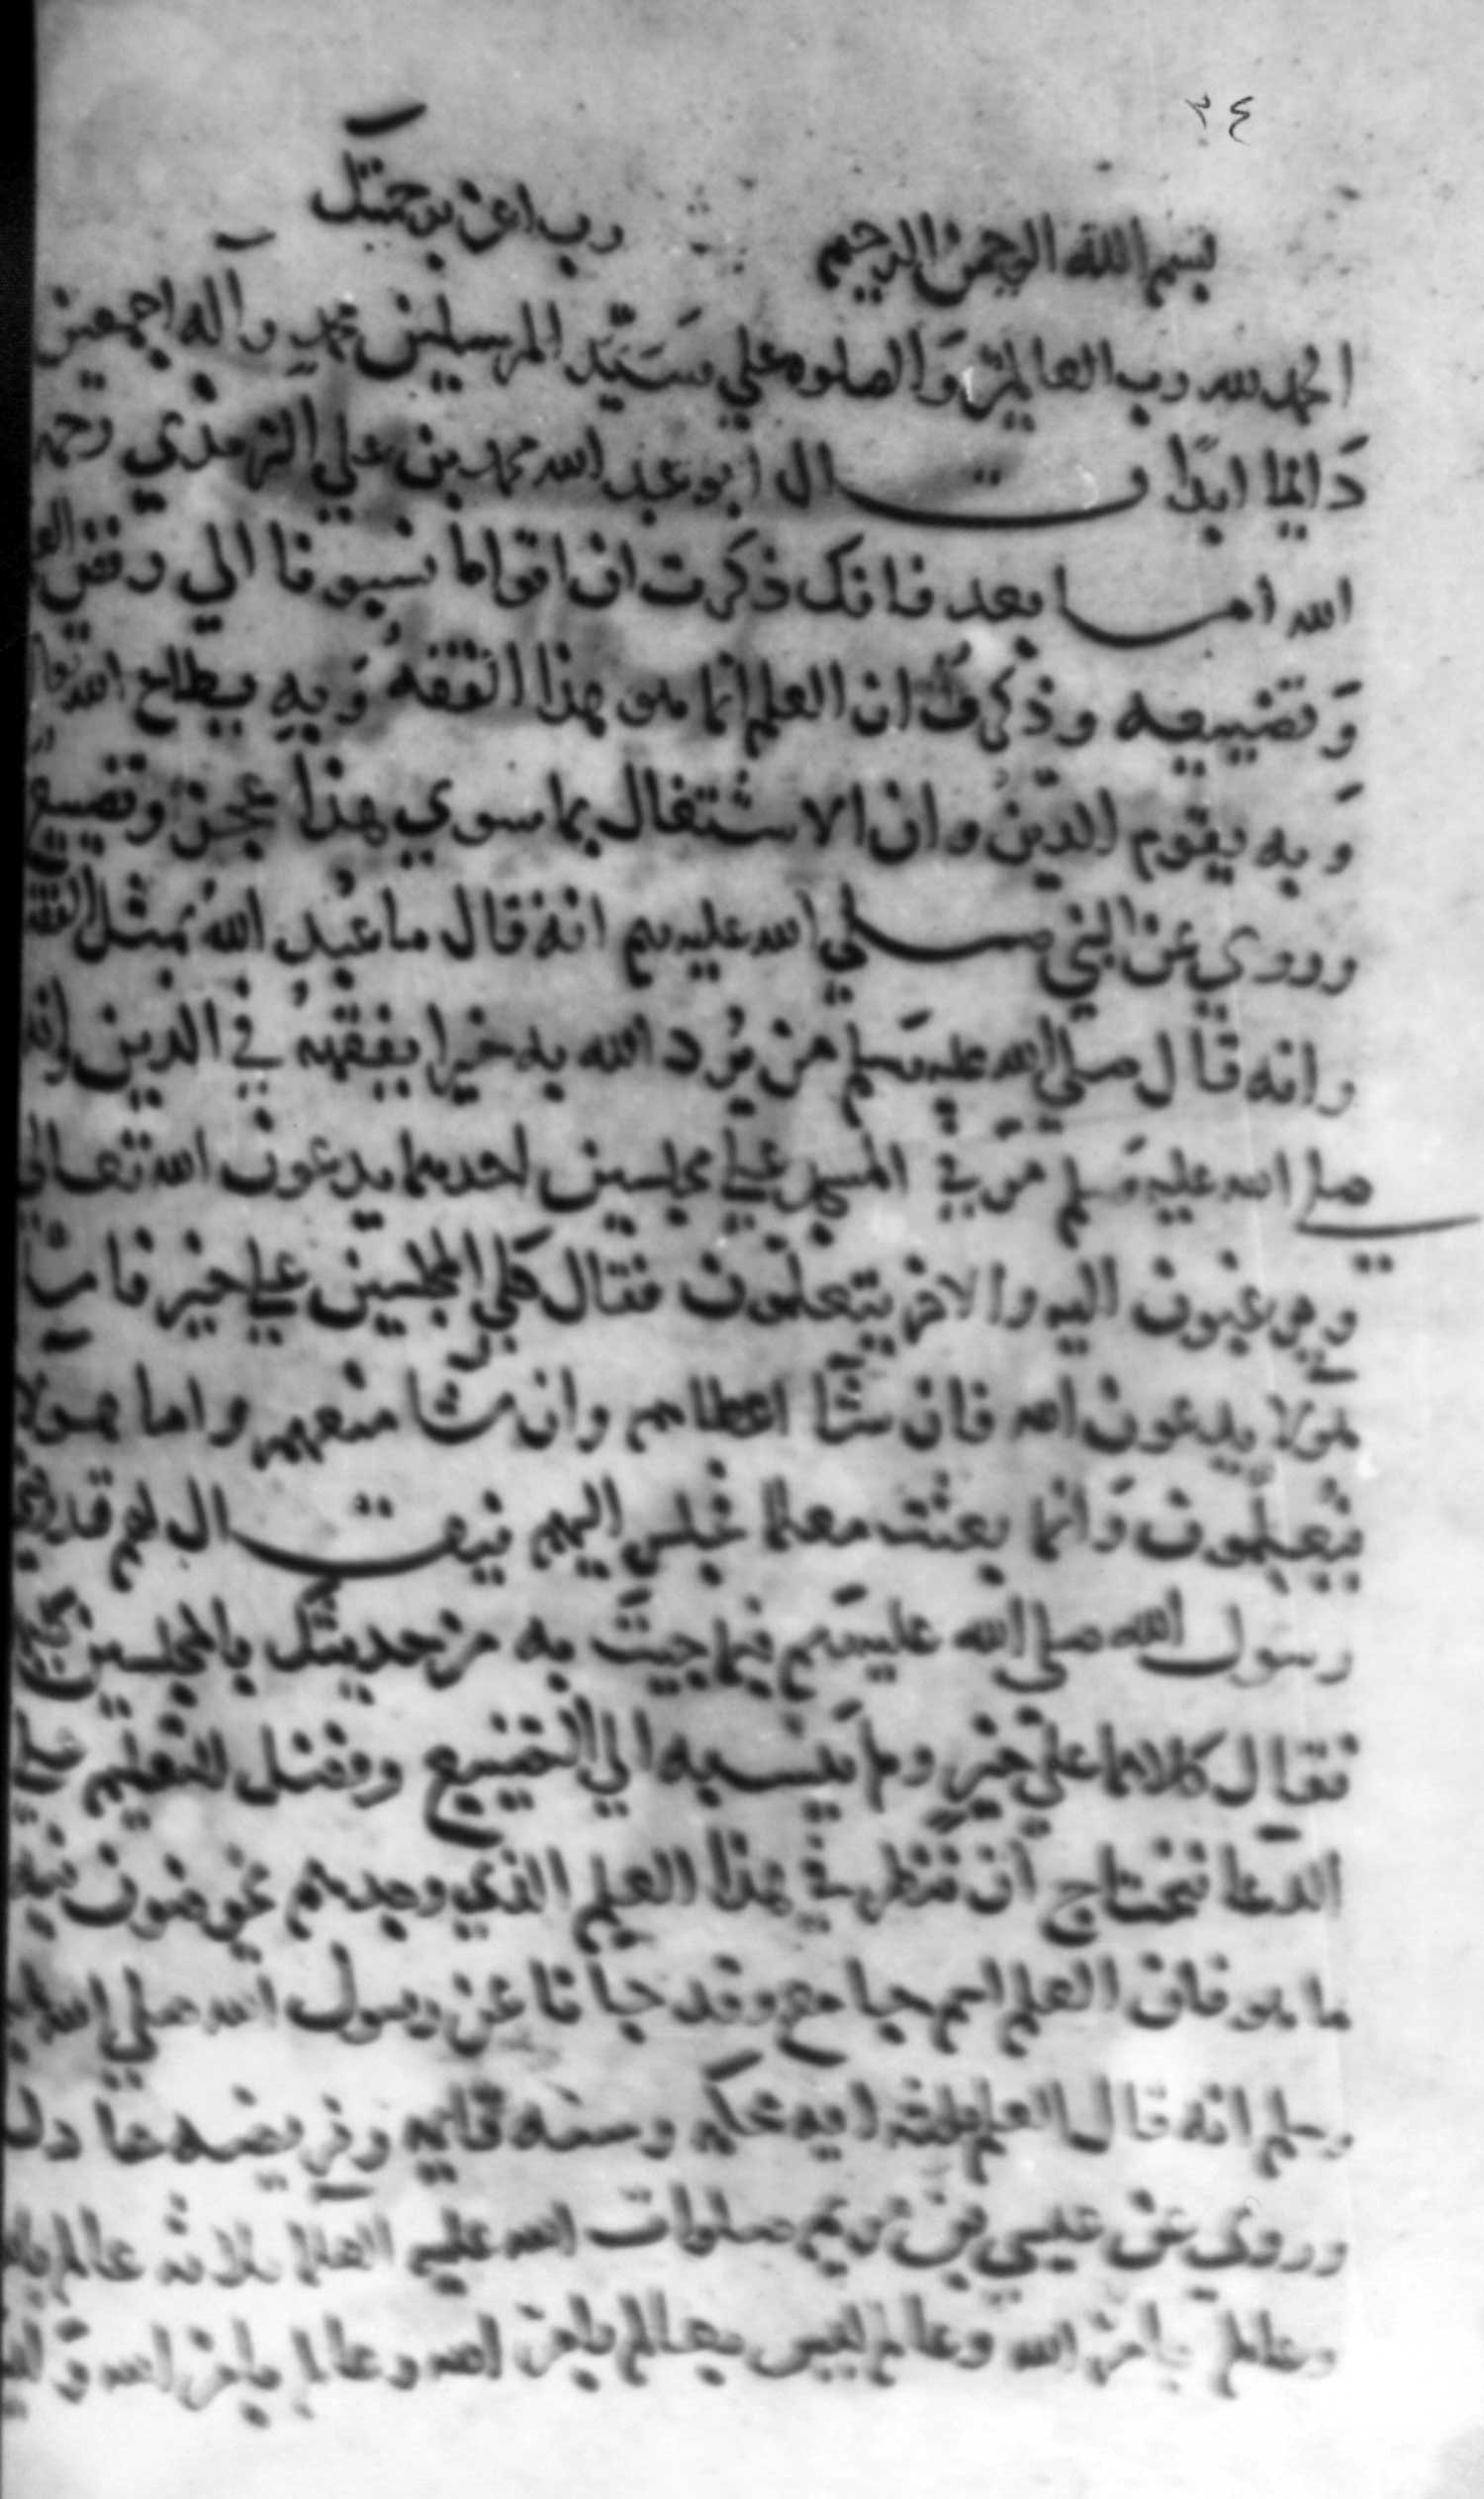 ٢٤
بسم الله الرحمن الرحيم رب اعن برحمتك
الحمد لله رب العالمين والصلوه علي سيد المرسلين محمد وآله اجمعين
دائما ابدا قال ابو عبد الله محمد بن علي الترمذي رحمه
الله اما بعد فانك ذكرت ان اقواما نسبونا الي رفض
وتضييعه وذكرت ان العلم انما هو هذا الفقه وبه يطاع الله
وبه يقوم الدين وان الاشتغال بما سوي هذا عجز وتضييع
وروي عن النبي صلي الله عليه وسلم انه قال ما عبد الله بمثل الفقه
وانه قال صلي الله عليه وسلم من يرد الله به خيرا يفقهه في الدين وانه
صلي الله عليه وسلم مر في المسجد علي مجلسين احدهما يدعون الله تعالي
ويرغبون اليه والاخر يتعلمون فقال كلي المجلسين علي خير فاما
هولا يدعون الله فان شا اعطاهم وان شا منعهم واما هولا
يتعلمون وانما بعثت معلما فجلس اليهم فيقال لهم قد
رسول الله صلي الله عليه وسلم فيما جيت به من حديثك بالمجلسين
فقال كلاهما علي خير ولم ينسبه الي التضييع وفضل التعليم علي
الدعا فنحتاج ان ننظر في هذا العلم الذي وجدهم يخوضون فيه
ما هو فان العلم اسم جامع وقد جانا عن رسول الله صلي الله عليه
وسلم انه قال العلم ثلثة ايه محكمه وسنه قايمه وفريضه عادله
وروي عن عيسي بن مريم صلوات الله عليه العلما ثلاثه عالم بالله
وعالم بامر الله وعالم ليس بعالم بامر الله وعالم بامر الله